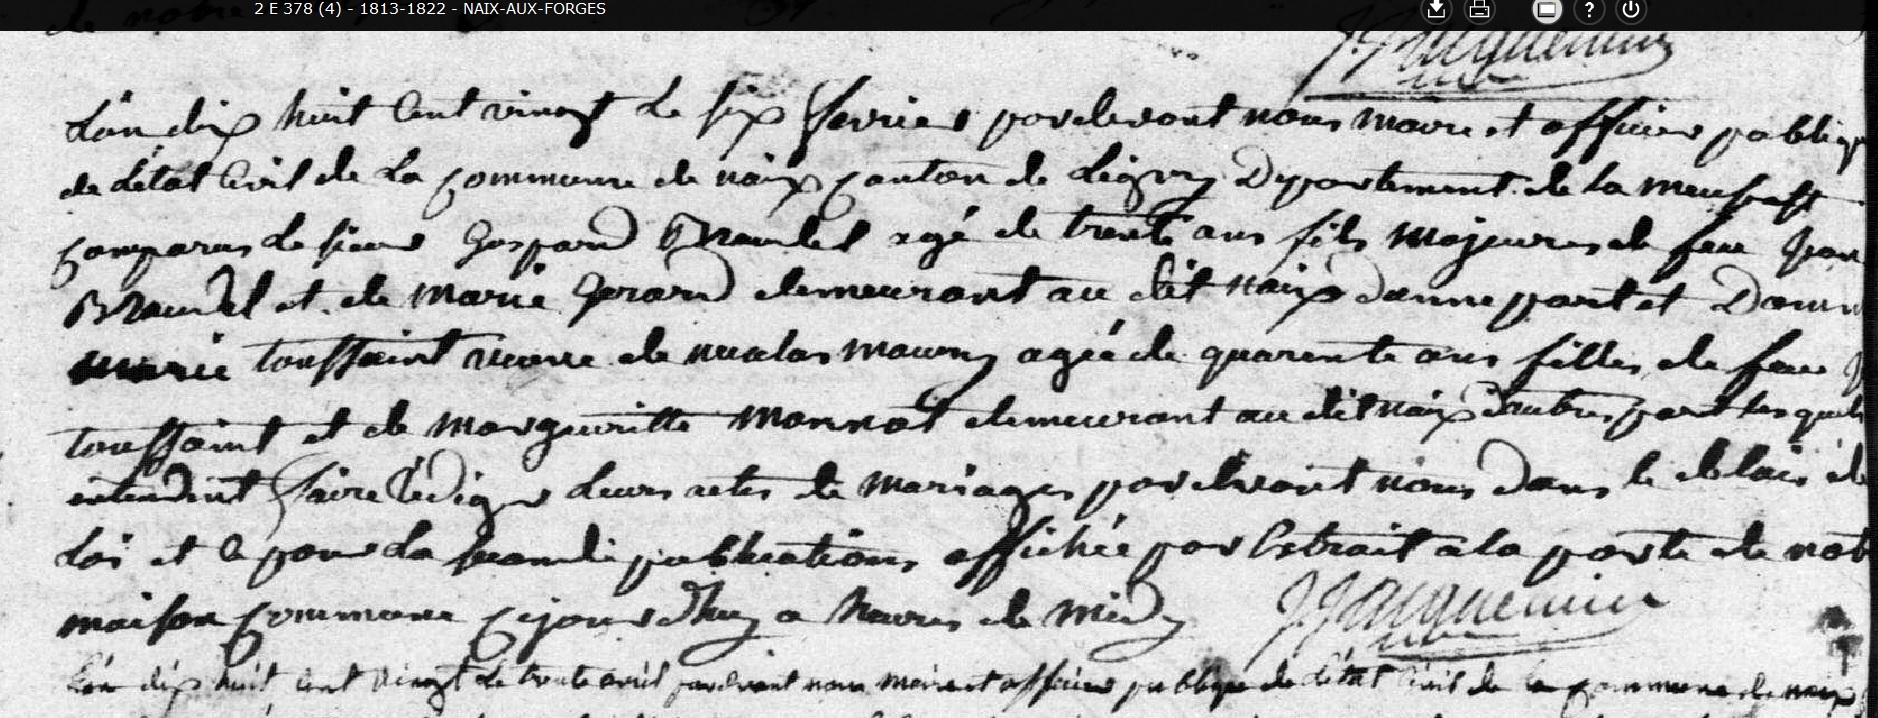 de notre
2 E 378 (4) - 1813-1822 - NAIX-AUX-FORGES
J. Jacquemin
L'an dix huit Cent vingt Le six ffevrier pardevant nous maire et officier publiq
de L'état Civil de La Commune de naix Canton de Ligny Departement de la meuse est
Comparus Le sieur Gaspard Braudel agé de trente ans fils majeures de feu Jean
Braudel et de Marie Gerard demeurant au dit naix d'onne part et Dam
marie toussaint veuve de nicolas mauvy agée de quarente ans filles de feu
toussaint et de margueritte Monnot demeurant au dit naix d'autres part Lesquels
entendent ffaire Rediger Leurs actes de mariages pardevant nous Dans le delais de
Loi et Ce pour La seconde publications affichée par Extrait a la porte de not
maison Commune Cejourdhuy a heures de midy J. Jacquemin
L'an dix huit Cent vingt Le trente avril pardevant nous maire et officier publique de L'état Civil de la Commune de naix